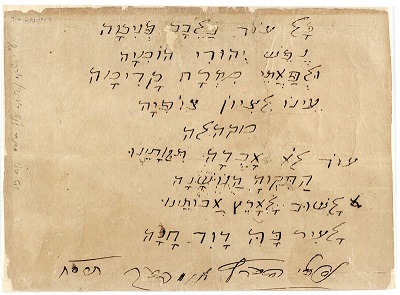 כָל עוֹד בַּלֵבָב פְּנִימָה
נֶפֶשׁ יְהוּדִי הוֹמִיָה
וּלְפַאֲתֵי מִזְרָח קָדִימָה
עֵינוֹ לְצִיוֹן צוֹפִיָה
מקהלה
עוֹד לֹא אָבְדָה תִּקְוָתֵינוּ
הַתִּקְוָה הַנּוֹשָׁנָה
לָשׁוּב לְאֶרֶץ אֲבוֹתֵינוּ
לְעִיר בָּהּ דָוִד חָנָה
נפתלי הערץ אימבער